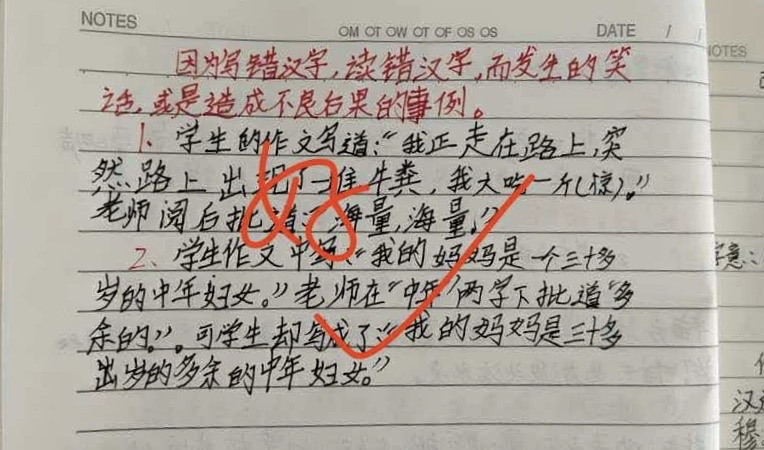 NOTES
OM OT OW OT OF OS OS
DATE / /
因为写错汉字,读错汉字,而发生的笑
话,或是造成不良后果的事例。
1、学生的作文写道:“我正走在路上,突
然路上出现了一堆牛粪,我大吃一斤(惊)。”
老师阅后批道:“海量,海量。”
2、学生作文中写:“我的妈妈是一个三十多
岁的中年妇女。”老师在“中年”两字下批道“多
余的。”。可学生却写成了“我的妈妈是三十多
出岁的多余的中年妇女。”
好
NOTES
字意:
汉
穆